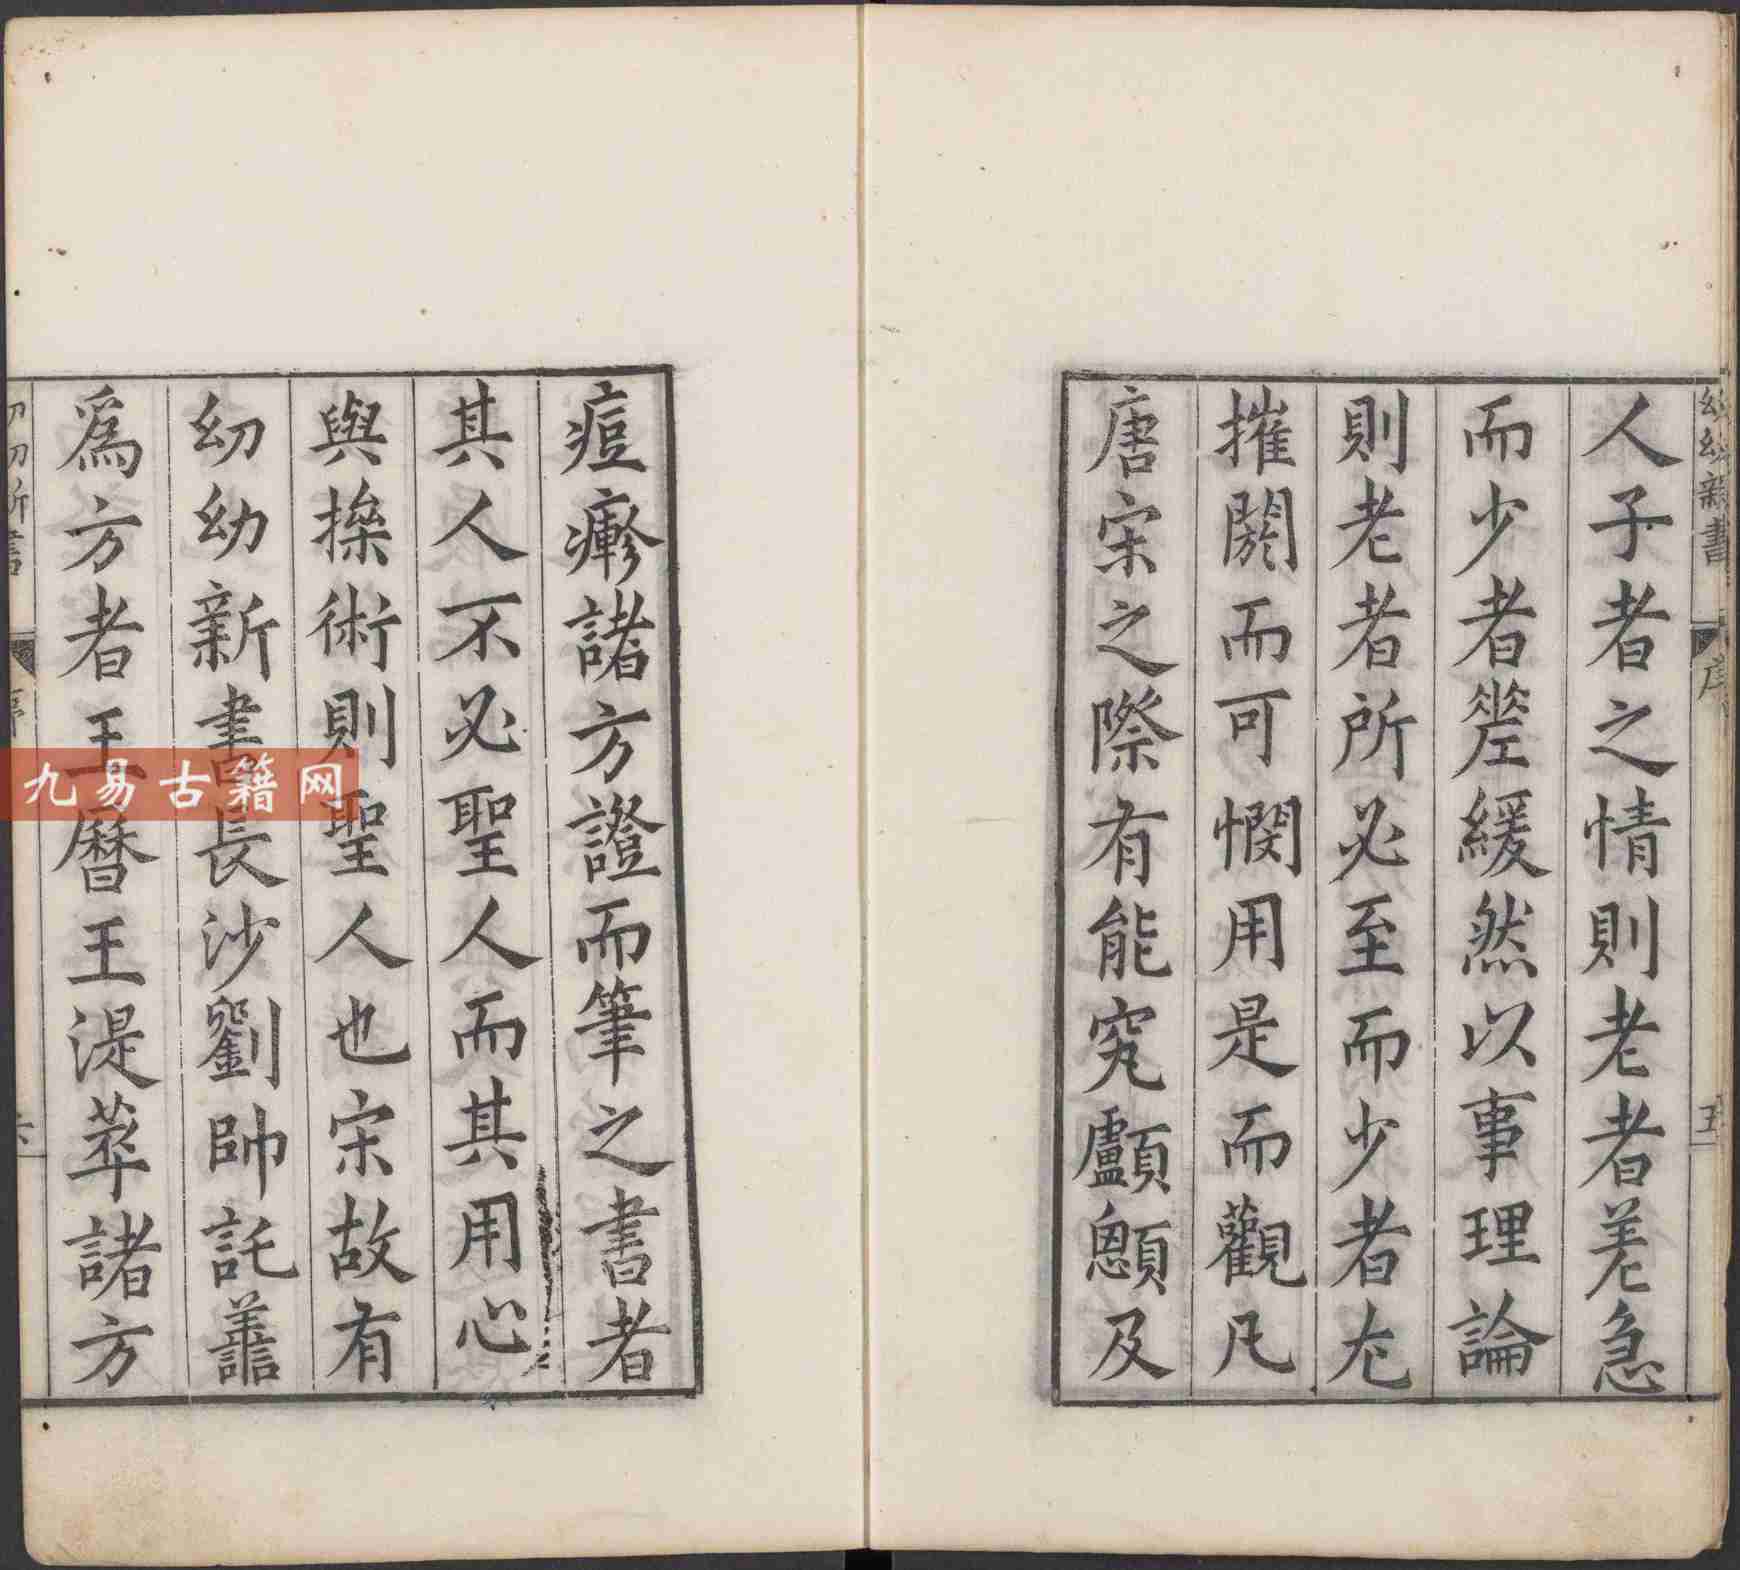 幼幼新書
序
五
人子者之情則老者差急
而少者差緩然以事理論
則老者所必至而少者尤
摧閼而可憫用是而觀凡
唐宋之際有能究顱顖及
痘𤺋諸方證而筆之書者
其人不必聖人而其用心
與操術則聖人也宋故有
幼幼新書長沙劉帥託諸
爲方者王曆王湜萃諸方
九易古籍网